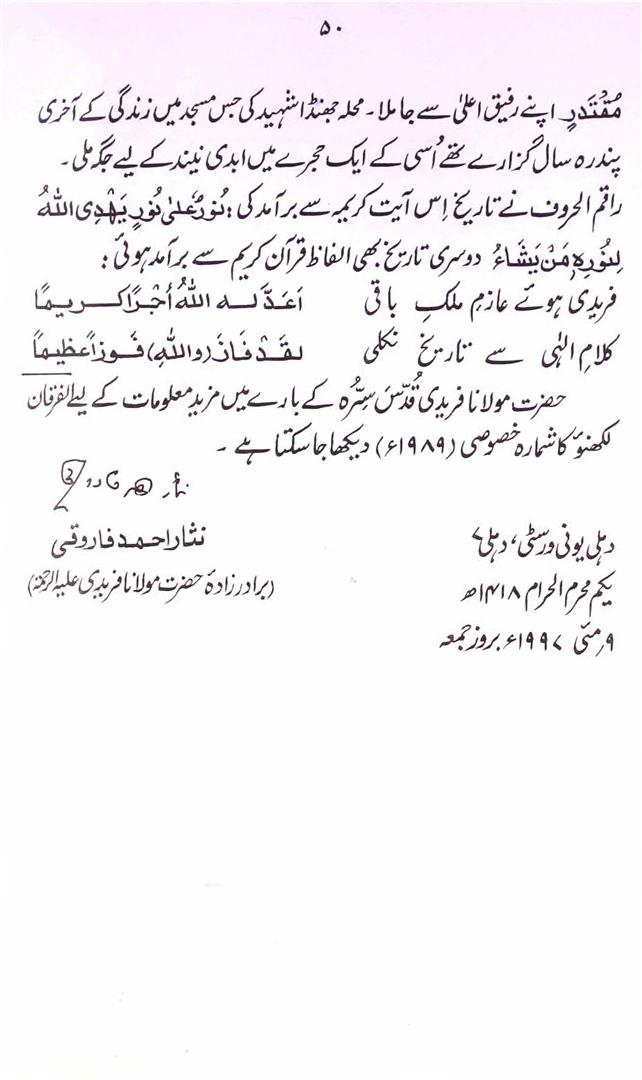 ۵۰
مُقْتَدِرٍ اپنے رفیق اعلیٰ سے جا ملا۔ محلہ جھنڈا شہید کی جس مسجد میں زندگی کے آخری
پندرہ سال گزارے تھے اُسی کے ایک حجرے میں ابدی نیند کے لیے جگہ ملی۔
راقم الحروف نے تاریخ اِس آیت کریمہ سے برآمد کی: نُورٌ عَلىٰ نُورٍ يَهْدِى اللهُ
لِنُورِهٖ مَنْ يَشَاءُ دوسری تاریخ بھی الفاظ قرآن کریم سے برآمد ہوئی:
فریدی ہوئے عازمِ ملکِ باقی اَعَدَّ لـه اللهُ أجْرًا كـريـمًا
کلامِ الہٰی سے تاریخ نکلی لقَدْ فَازَ (واللهِ) فَوزاً عَظِيمًا
حضرت مولانا فریدی قُدِّسَ سِرُّہ کے بارے میں مزید معلومات کے لیے الفرقان
لکھنؤ کا شمارہ خصوصی (۱۹۸۹ء) دیکھا جا سکتا ہے۔
نثار احمد فاروقی
دہلی یونی ورسٹی، دہلی ۷ نثار احمد فاروقی
یکم محرم الحرام ۱۴۱۸ھ (برادر زادۂ حضرت مولانا فریدی علیہ الرحمۃ)
۹ر مئی ۱۹۹۷ء بروز جمعہ